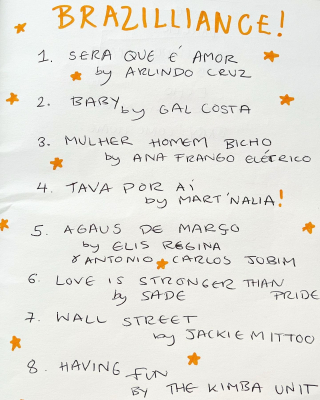 BRAZILLIANCE!
1. SERA QUE E' AMOR
by ARLINDO CRUZ
2. BABY, by GAL COSTA
3. MULHER HOMEM BICHO
by ANA FRANGO ELÉTRICO
4. TAVA POR AÍ
by MART'NALIA!
5. AGAUS DE MARÇO
by ELIS REGINA
& ANTONIO CARLOS JOBIM
6. LOVE IS STRONGER THAN PRIDE
by SADE
7. WALL STREET
by JACKIE MITTOO
8. HAVING FUN
BY THE KIMBA UNIT